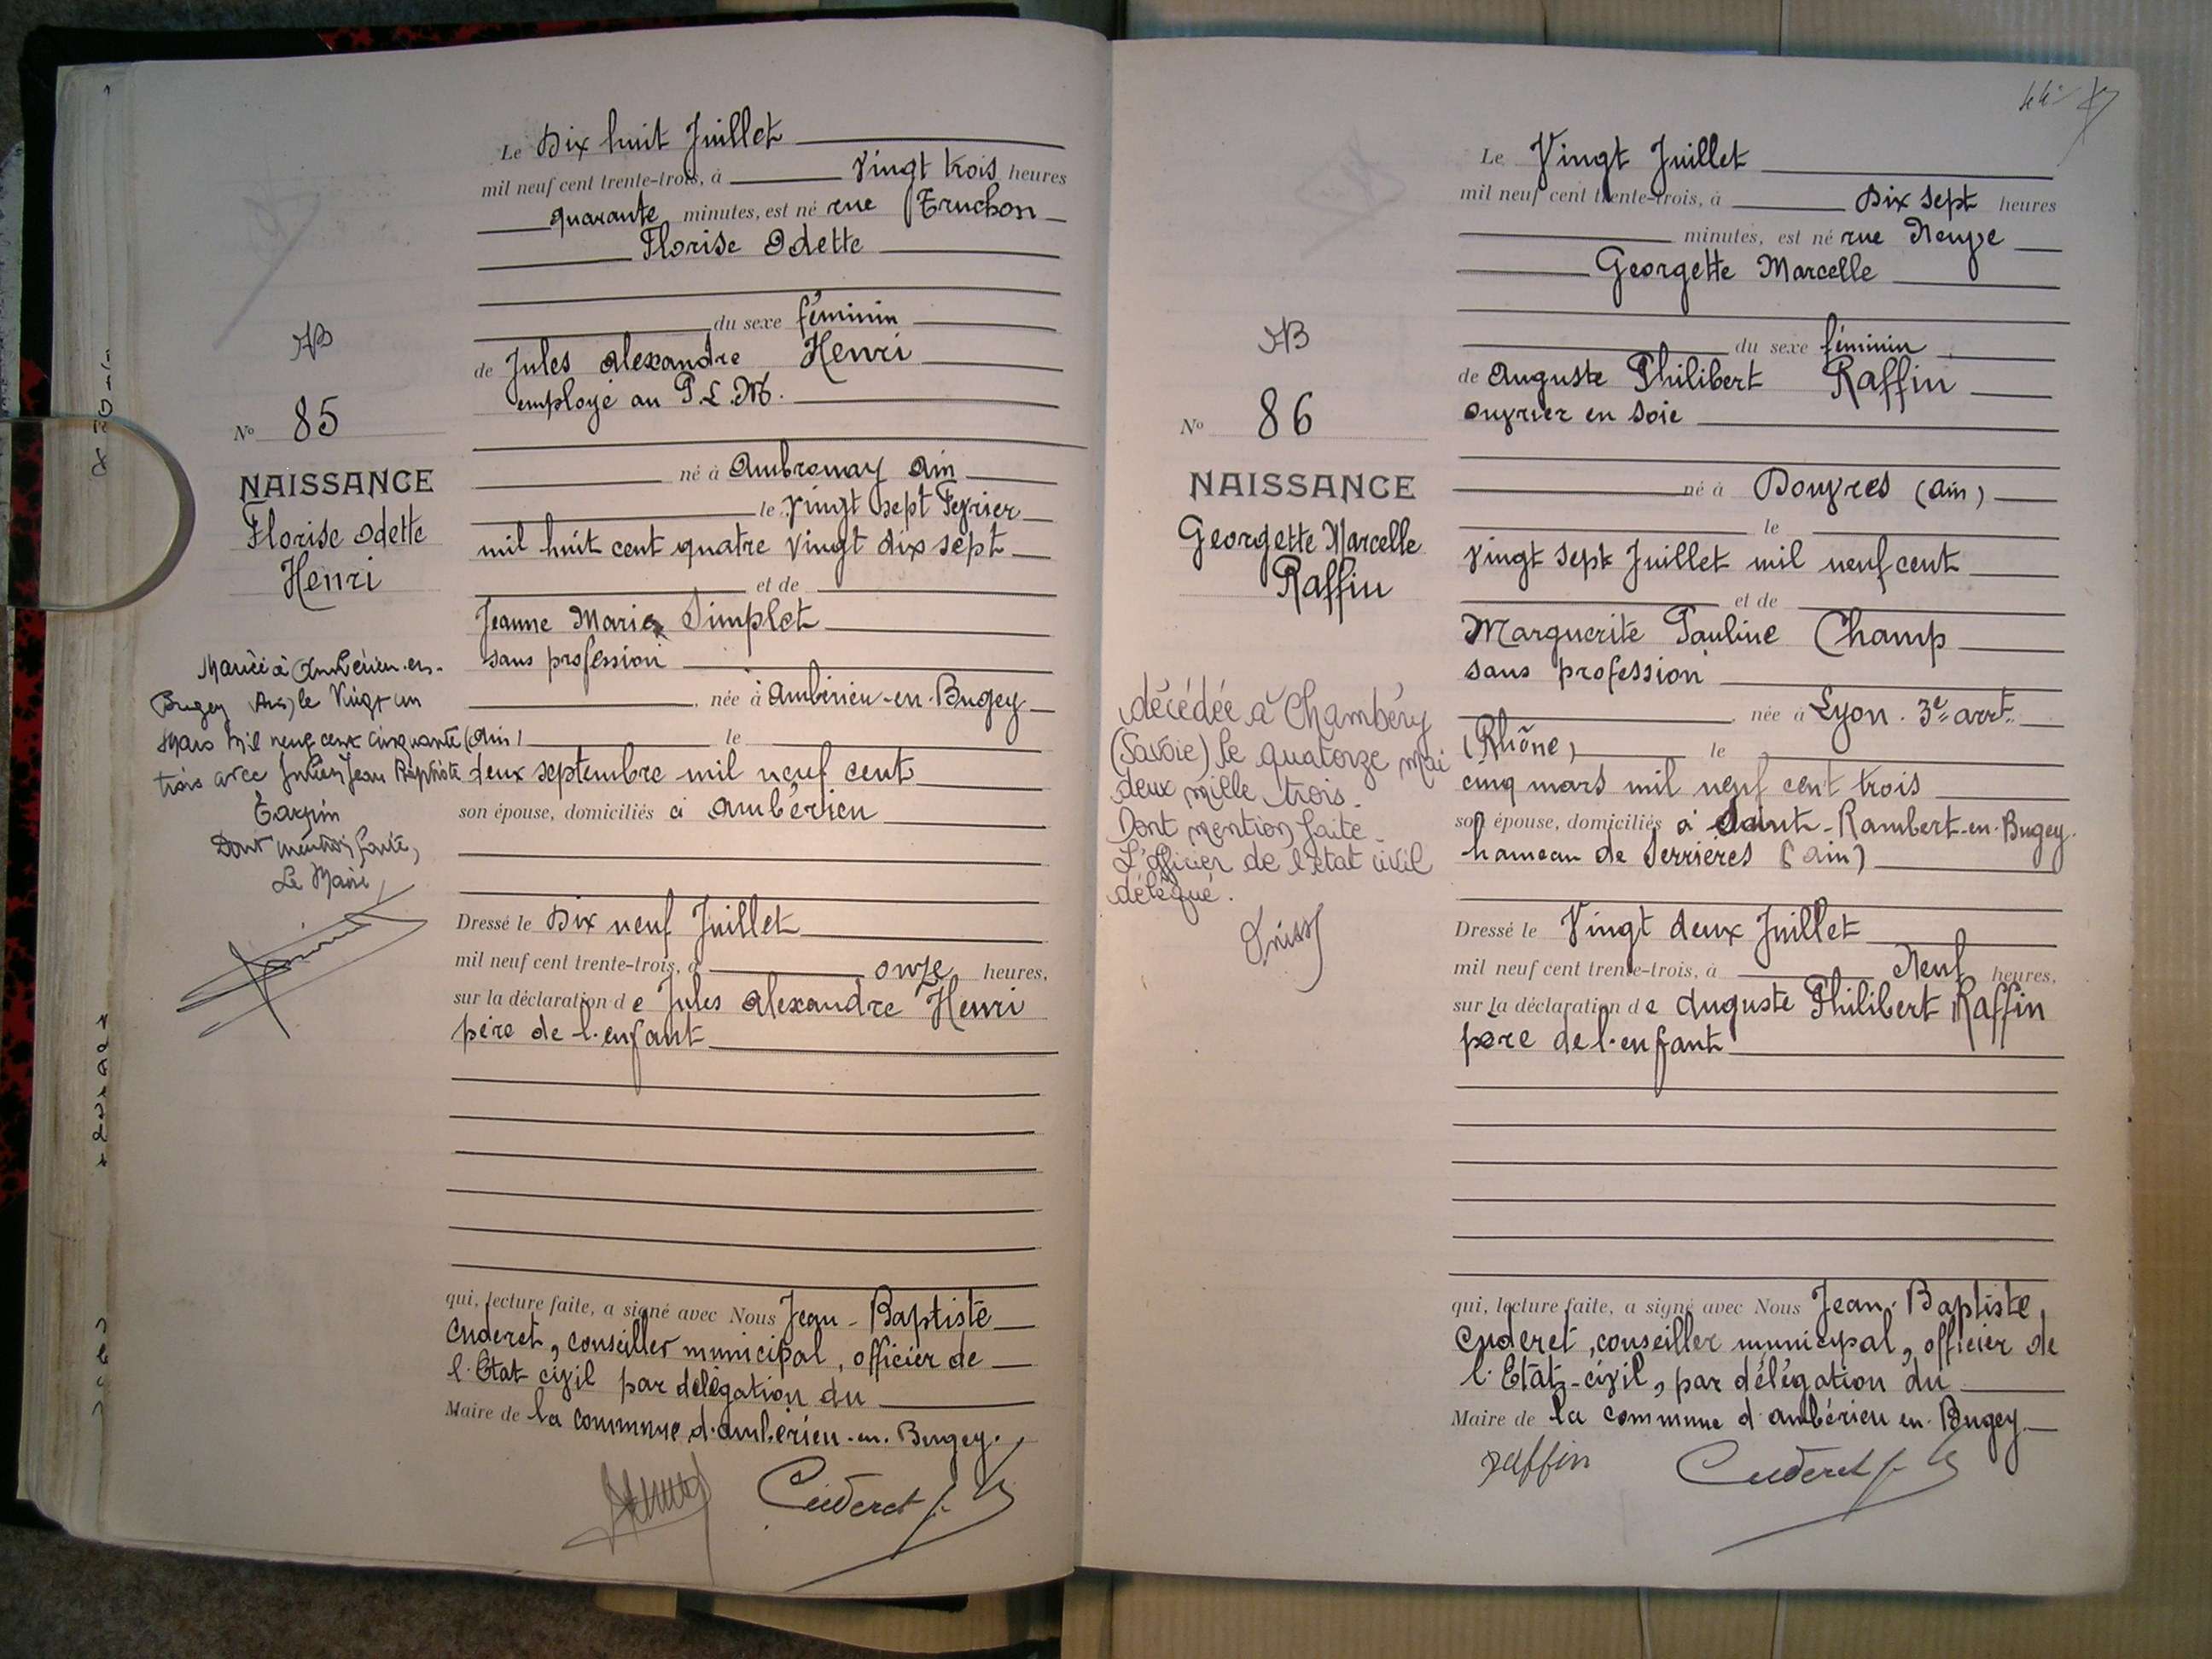 Le Dix huit Juillet
mil neuf cent trente-trois, à vingt trois heures
quarante minutes, est né rue Truchon
Florise Odette
du sexe féminin
de Jules Alexandre Henri
employé au P.L.M.
né à Ambronay Ain
le Vingt Sept Fevrier
mil huit cent quatre vingt dix sept
et de
Jeanne Marie Simplet
sans profession
née à Ambérieu-en-Bugey
(Ain) le
deux septembre mil neuf cent
son épouse, domiciliés à Ambérieu
Dressé le Dix neuf Juillet
mil neuf cent trente-trois, à onze heures,
sur la déclaration de Jules Alexandre Henri
père de l'enfant
qui, lecture faite, a signé avec Nous Jean-Baptiste
Cuderet, conseiller municipal, officier de
l'Etat civil par délégation du
Maire de la commune d'Ambérieu-en-Bugey.
Cuderet
No 85
NAISSANCE
Florise Odette
Henri
Mariée à Ambérieu-en-
Bugey (Ain) le Vingt un
Mars mil neuf cent cinquante
trois avec Julien Jean Baptiste
Tarpin
Dont mention faite,
Le Maire
Le Vingt Juillet
mil neuf cent trente-trois, à Dix sept heures
minutes, est né rue Neuve
Georgette Marcelle
du sexe féminin
de Auguste Philibert Raffin
ouvrier en soie
né à Douvres (Ain)
le
vingt sept Juillet mil neuf cent
et de
Marguerite Pauline Champ
sans profession
née à Lyon. 3e arrt.
(Rhône) le
cinq mars mil neuf cent trois
son épouse, domiciliés à Saint-Rambert-en-Bugey.
hameau de Serrières (Ain)
Dressé le Vingt deux Juillet
mil neuf cent trente-trois, à Neuf heures,
sur la déclaration de Auguste Philibert Raffin
père de l'enfant
qui, lecture faite, a signé avec Nous Jean-Baptiste
Cuderet, conseiller municipal, officier de
l'Etat-civil, par délégation du
Maire de la commune d'Ambérieu en Bugey
raffin Cuderet
No 86
NAISSANCE
Georgette Marcelle
Raffin
décédée à Chambéry
(Savoie) le quatorze mai
deux mille trois.
Dont mention faite.
L'officier de l'état civil
délégué.